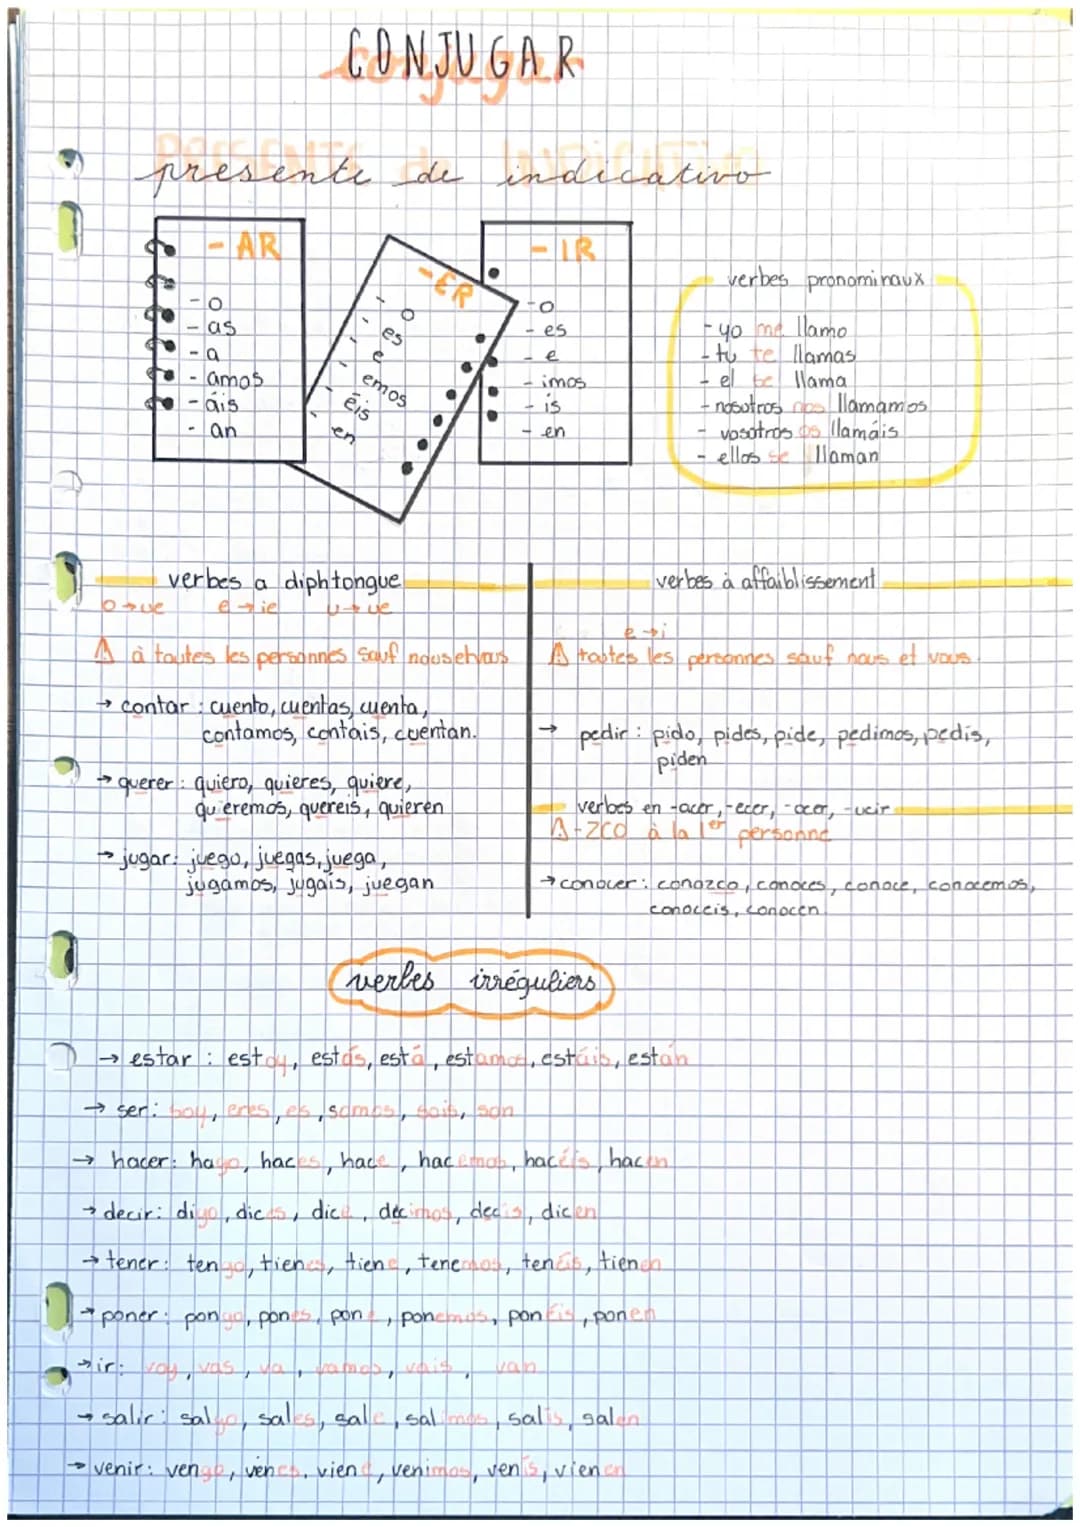 CONJUGAR
presente de indicativo
- AR
- o
- as
- a
- amos
- áis
- an
- ER
- o
- es
- e
- emos
- éis
- en
- IR
- o
- es
- e
- imos
- is
- en
verbes pronominaux
- yo me llamo
- tu te llamas
- el se llama
- nosotros nos llamamos
- vosotros os llamáis
- ellos se llaman
verbes a diphtongue
o → ue e → ie u → ue
⚠ à toutes les personnes sauf nous et vous
→ contar : cuento, cuentas, cuenta,
contamos, contáis, cuentan.
→ querer : quiero, quieres, quiere,
queremos, quereis, quieren
→ jugar : juego, juegas, juega,
jugamos, jugáis, juegan
verbes à affaiblissement
e → i
⚠ toutes les personnes sauf nous et vous.
→ pedir : pido, pides, pide, pedimos, pedís,
piden
verbes en -acer, -ecer, -ocer, -ucir
⚠ -zco à la 1er personne
→ conocer : conozco, conoces, conoce, conocemos,
conoceis, conocen.
verbes irréguliers
→ estar : estoy, estás, está, estamos, estáis, están
→ ser : soy, eres, es, somos, sois, son
→ hacer : hago, haces, hace, hacemos, hacéis, hacen
→ decir : digo, dices, dice, decimos, decís, dicen
→ tener : tengo, tienes, tiene, tenemos, tenéis, tienen
→ poner : pongo, pones, pone, ponemos, ponéis, ponen
→ ir : voy, vas, va, vamos, vais, van
→ salir : salgo, sales, sale, salimos, salís, salen
→ venir : vengo, vénes, viene, venimos, venís, vienen